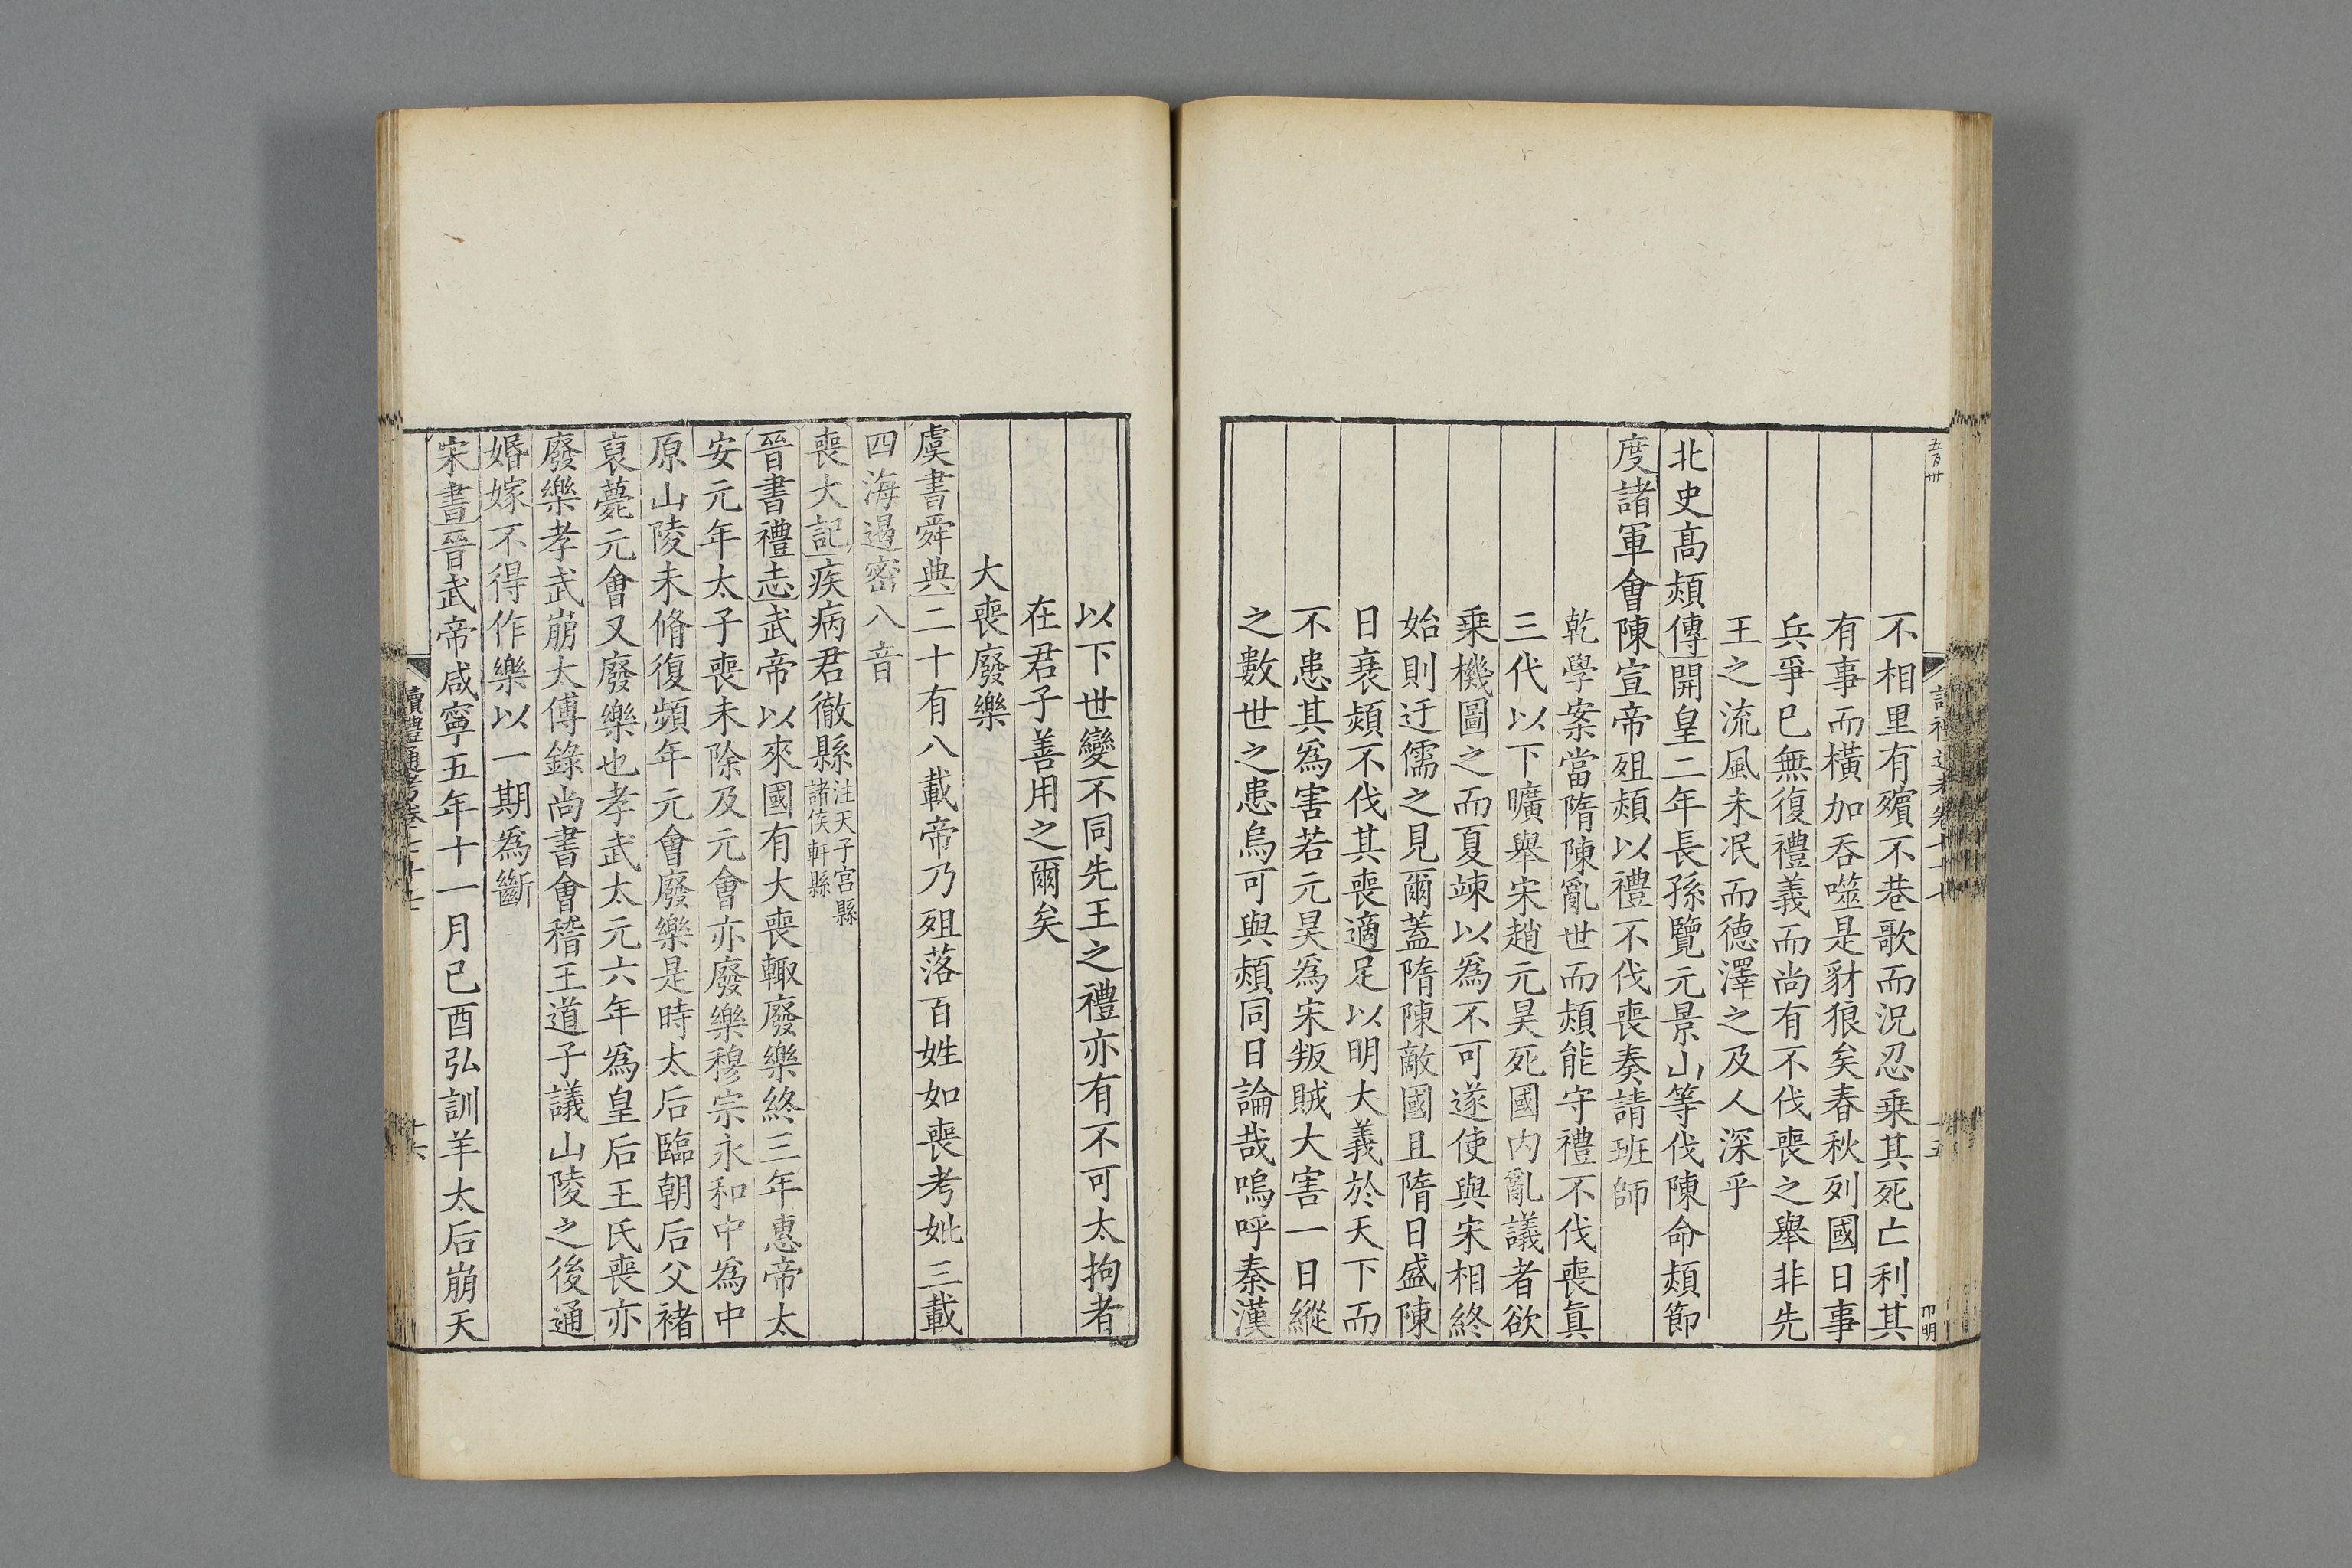 五百卅
不相里有殯不巷歌而況忍乗其死亡利其
有事而橫加吞噬是豺狼矣春秋列國日事
兵爭巳無復禮義而尚有不伐喪之舉非先
王之流風未泯而德澤之及人深乎
北史髙熲傳開皇二年長孫覽元景山等伐陳命熲節
度諸軍會陳宣帝殂熲以禮不伐喪奏請班師
乾學案當隋陳亂世而熲能守禮不伐喪眞
三代以下曠舉宋趙元昊死國内亂議者欲
乗機圖之而夏竦以爲不可遂使與宋相終
始則迂儒之見爾蓋隋陳敵國且隋日盛陳
日衰熲不伐其喪適足以明大義於天下而
不患其爲害若元昊爲宋叛賊大害一日縱
之數世之患烏可與熲同日論哉嗚呼秦漢
以下世變不同先王之禮亦有不可太拘者
在君子善用之爾矣
大喪廢樂
虞書舜典二十有八載帝乃殂落百姓如喪考妣三載
四海遏密八音
喪大記疾病君徹縣注天子宮縣諸侯軒縣
晉書禮志武帝以來國有大喪輙廢樂終三年惠帝太
安元年太子喪未除及元會亦廢樂穆宗永和中爲中
原山陵未脩復頻年元會廢樂是時太后臨朝后父褚
裒薨元會又廢樂也孝武太元六年爲皇后王氏喪亦
廢樂孝武崩太傅錄尚書會稽王道子議山陵之後通
婚嫁不得作樂以一期爲斷
宋書晉武帝咸寧五年十一月已酉弘訓羊太后崩天
讀禮通考卷七十七
十六